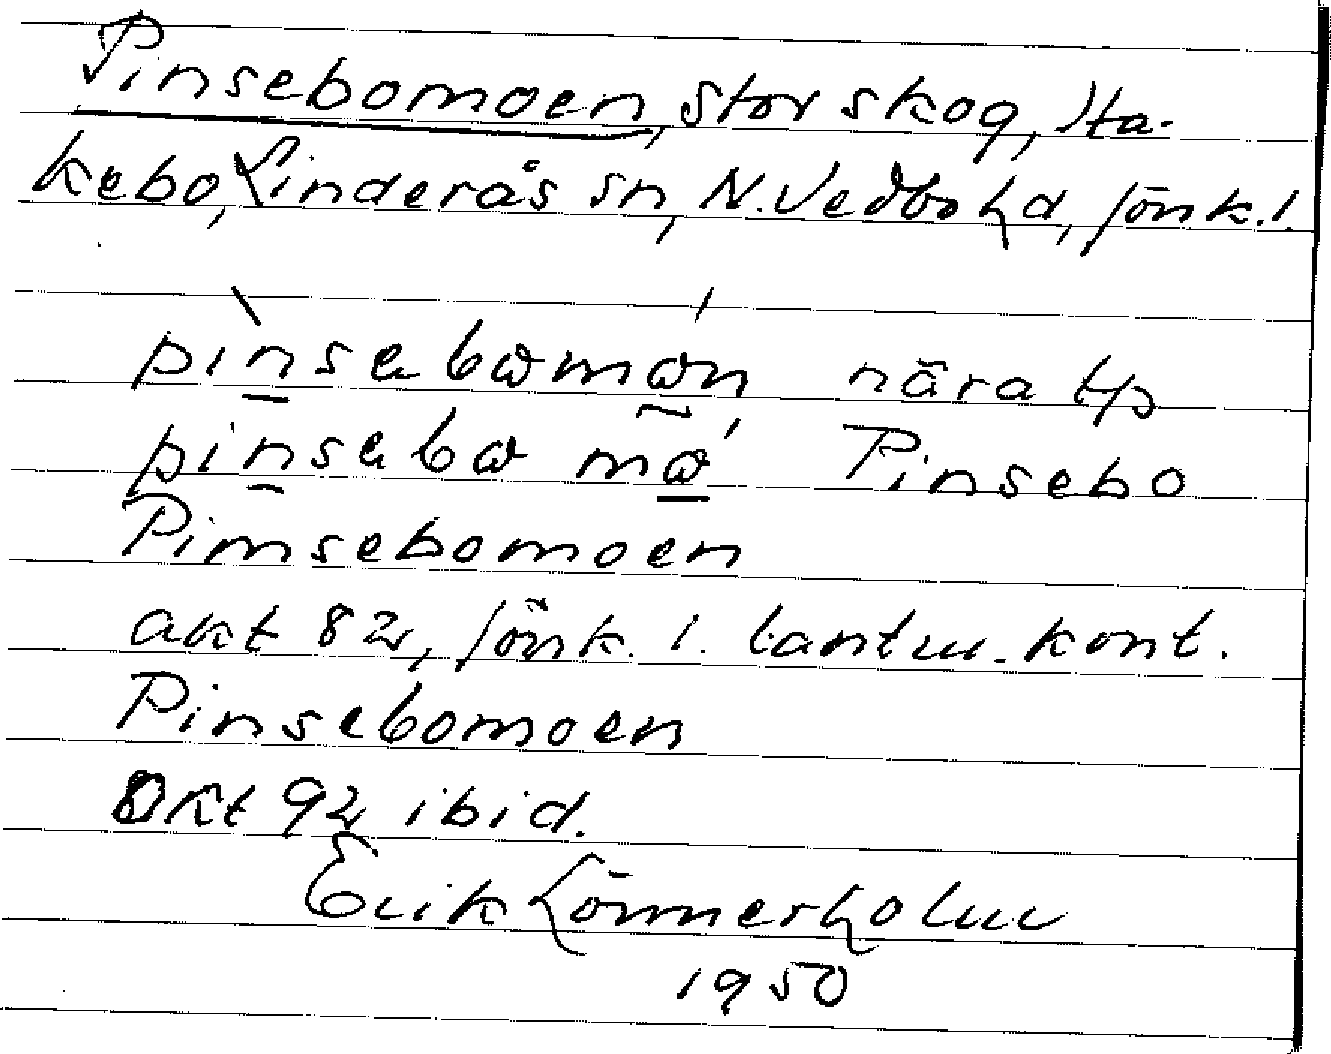 Pinsebomoen, stor skog, Sta-
kebo, Linderås sn, N. Vedbo hd, Jönk. l.
pìnsabωmώn nära tp
pinsabω mώ Pinsebo
Pimsebomoen
akt 82, Jönk. l. lantm. kont.
Pinsebomoen
akt 92 ibid.
Erik Lönnerholm
1950